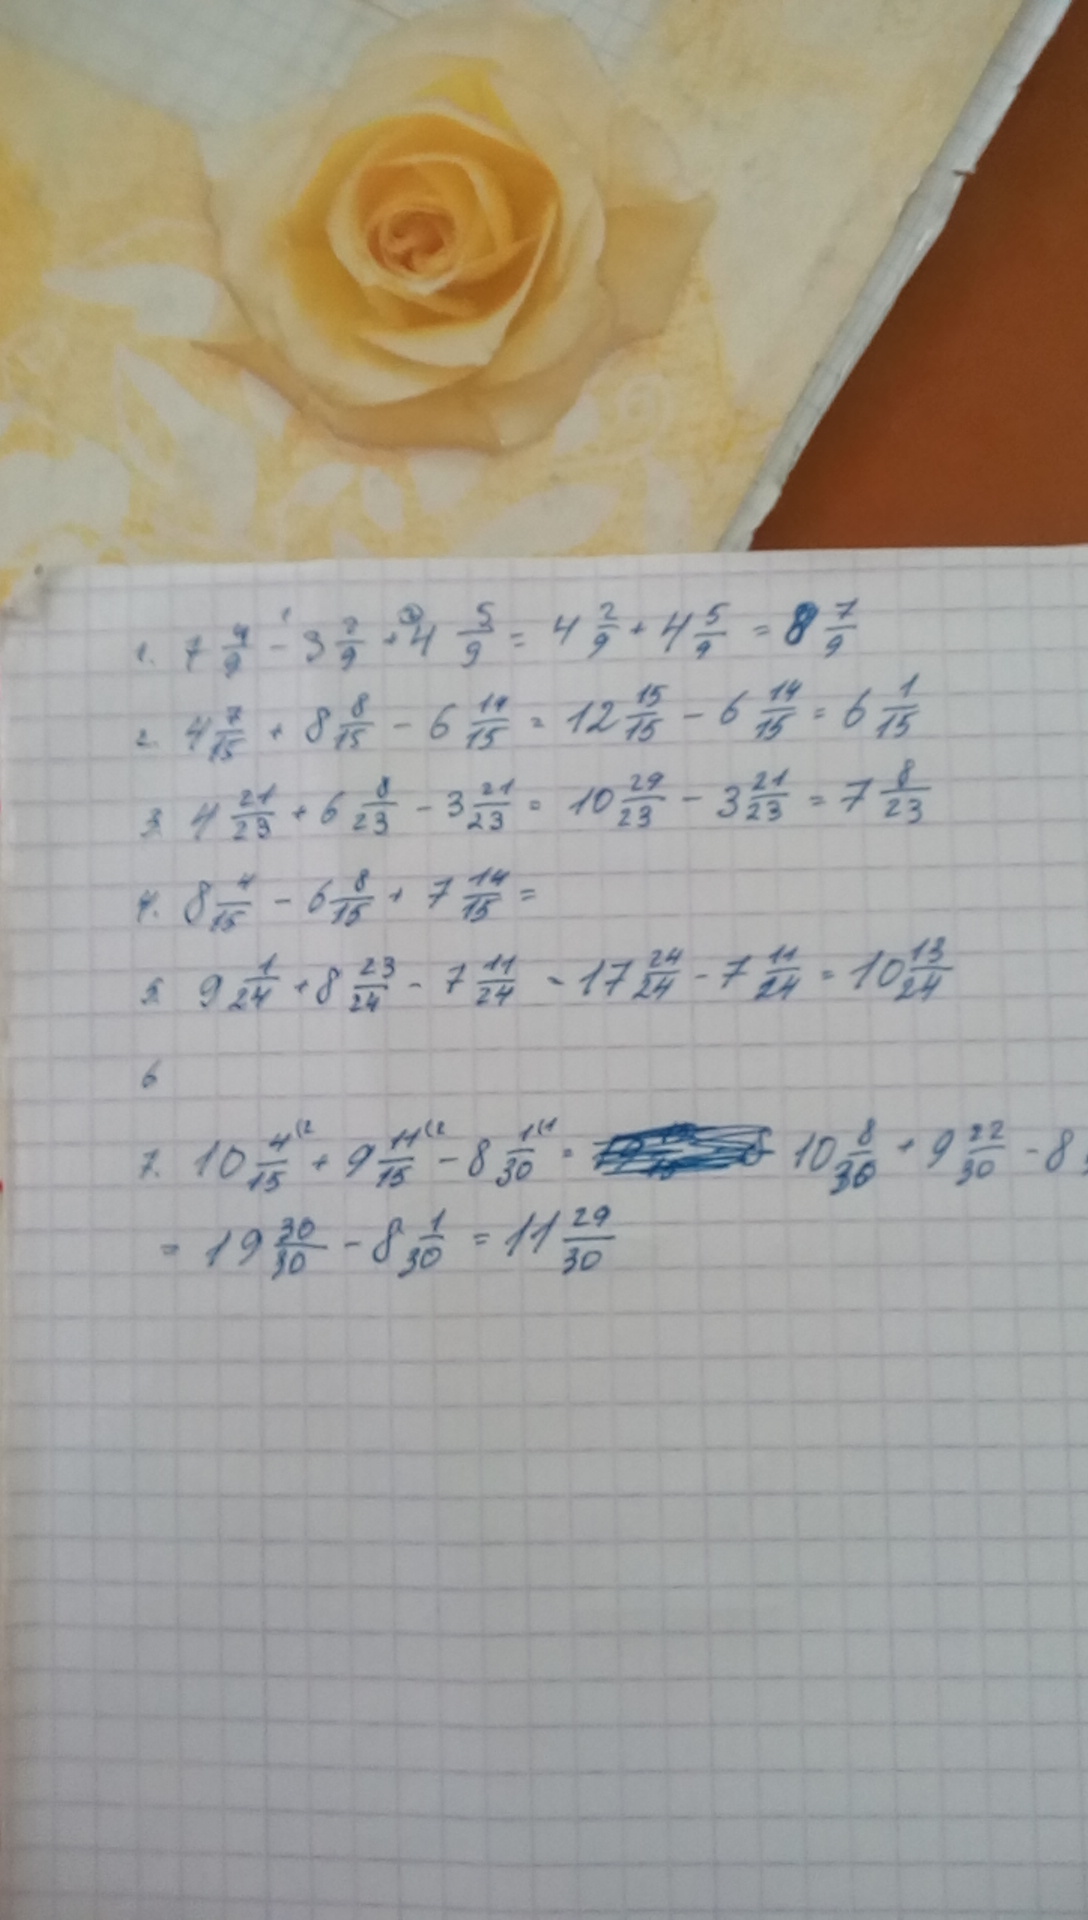 1. 7 4/9 - 3 2/9 + 4 5/9 = 4 2/9 + 4 5/9 = 8 7/9
2. 4 7/15 + 8 8/15 - 6 14/15 = 12 15/15 - 6 14/15 = 6 1/15
3. 4 21/23 + 6 8/23 - 3 21/23 = 10 29/23 - 3 21/23 = 7 8/23
4. 8 4/15 - 6 8/15 + 7 14/15 =
5. 9 1/24 + 8 23/24 - 7 11/24 - 17 24/24 - 7 11/24 = 10 13/24
6
7. 10 4/15 (2 + 9 11/15 (2 - 8 1/30 (1 = 10 8/30 + 9 22/30 - 8
= 19 30/30 - 8 1/30 = 11 29/30